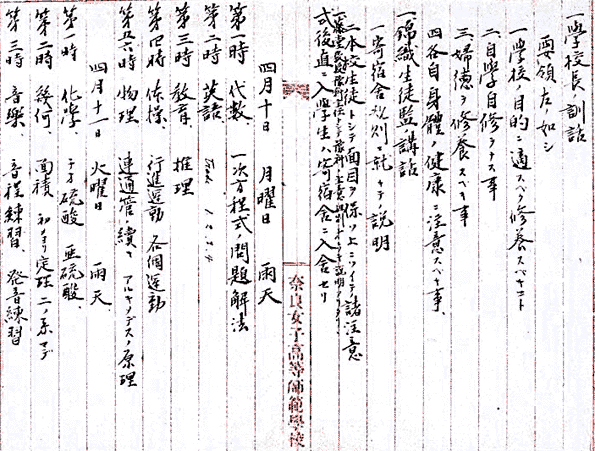 一學校長訓話
要領左ノ如シ
一學校ノ目的ニ適スベク修養スベキコト
二自學自修ヲナス事
三婦德ヲ修養スベキ事
四各自身體ノ健康ニ注意スベキ事、
一錦織生徒監講話
一寄宿舍規則ニ就キテノ説明
二本校生徒トシテ面目ヲ保ツ上ニツイテ諸注意
式後直ニ入學生ハ寄宿舍ニ入舍セリ
奈良女子高等師範學校
四月十日 月曜日 雨天
第一時 代數、一次方程式ノ問題解法
第二時 英語
第三時 教育、推理
第四時 体操、行進運動 各個運動
第五六時 物理 連通管ノ續キ アルキメデスノ原理
四月十一日 火曜日 雨天
第一時 化學、チオ硫酸 亜硫酸、
第二時 幾何、面積 初メヨリ定理二ノ系マデ
第三時 音樂、音程練習、発音練習